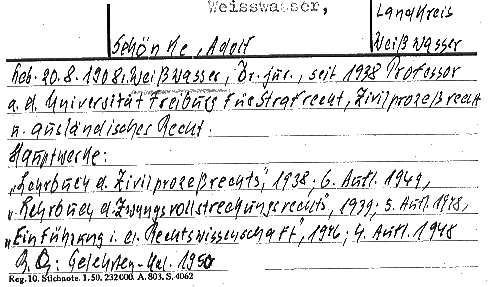 Weisswasser,
Landkreis
Weißwasser
Schönke, Adolf
Geb. 20.8.1908 i. Weißwasser, Dr. jur., seit 1938 Professor
a. d. Universität Freiburg für Strafrecht, Zivilprozeßrecht
u. ausländisches Recht.
Hauptwerke:
„Lehrbuch d. Zivilprozeßrechts", 1938, 6. Aufl. 1949,
„Lehrbuch d. Zwangsvollstreckungsrechts", 1939, 5. Aufl. 1948,
„Einführung i. d. Rechtswissenschaft", 1946; 4. Aufl. 1948
Gelehrten-Kal. 1950
Reg. 10. Stichnote. 1. 50. 232000. A. 803. S. 4062